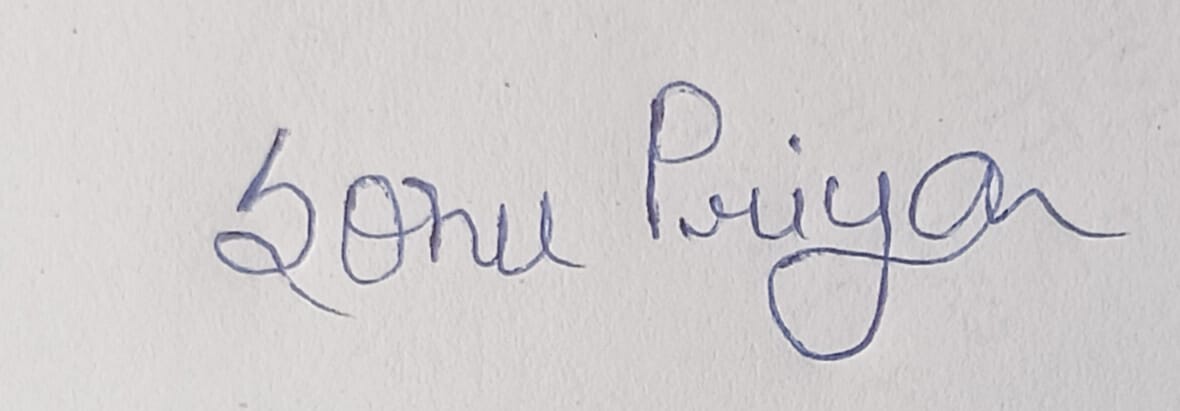 Sonu Priya